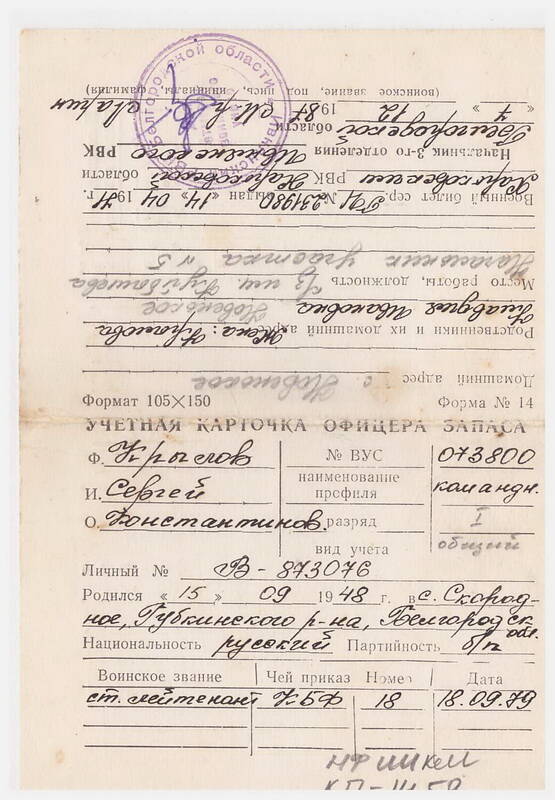 Домашний адрес с. Новенькое
Родственники и их домашний адрес Жена: Крылова
Клавдия Ивановна Новенькое
Место работы, должность
Начальник участка №5
Военный билет сер. ГД № 231980 выдан «14» 04 1971 г.
Харьковский РВК Харьковской области
Начальник 3-го отделения Ивнянского РВК
Белгородской области
«7» 12 1981
(воинское звание, подпись, инициалы, фамилия)
Формат 105×150 Форма № 14
УЧЕТНАЯ КАРТОЧКА ОФИЦЕРА ЗАПАСА
Ф. Крылов № ВУС 073800
И. Сергей наименование профиля командн.
О. Константинов. разряд I
вид учета общий
Личный № В-873076
Родился «15» 09 1948 г. в с. Скород-
ное, Губкинского р-на, Белгородск обл.
Национальность русский Партийность б/п
Воинское звание Чей приказ Номер Дата
ст. лейтенант КБФ 18 18.09.79